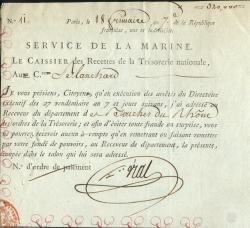 320,000
N.° 11. Paris, le 18 frimaire an 7.e de la République
française, une et indivisible.
SERVICE DE LA MARINE.
LE CAISSIER des Recettes de la Trésorerie nationale,
AU C.en Blanchard
Je vous préviens, Citoyen, qu'en exécution des arrêtés du Directoire
exécutif des 27 vendémiaire an 7 et jours suivans, j'ai adressé au
Receveur du département des Bouches du Rhône
les ordres de la Trésorerie; et afin d'éviter toute fraude ou surprise, vous
ne pourrez recevoir aucun à-compte qu'en remettant ou faisant remettre
par votre fondé de pouvoirs, au Receveur du département, la présente,
coupée dans le talon qui lui sera adressé.
N.° d'ordre de paiement